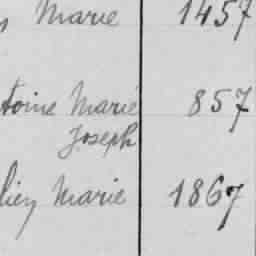 Marie 1457
toine Marie 857
Joseph
lien Marie 1867